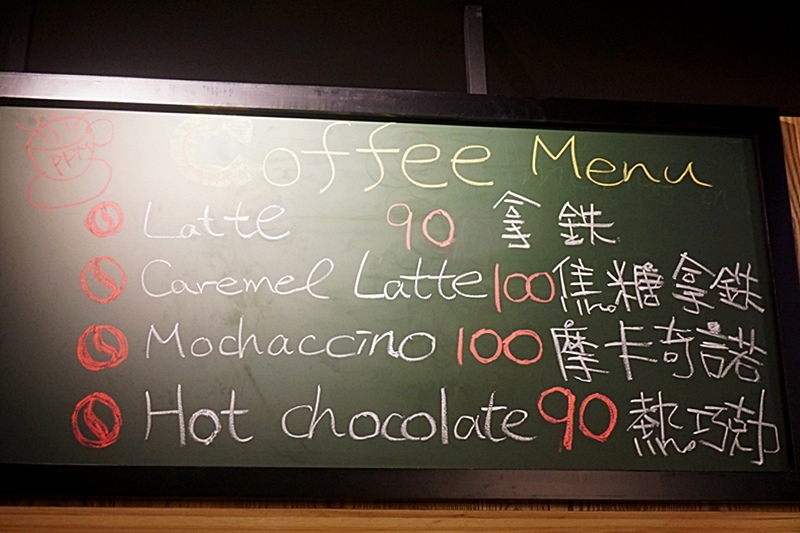 PFM
Coffee Menu
Latte 90 拿鉄
Caremel Latte 100 焦糖拿鉄
Mochaccino 100 摩卡奇諾
Hot chocolate 90 熱巧克力